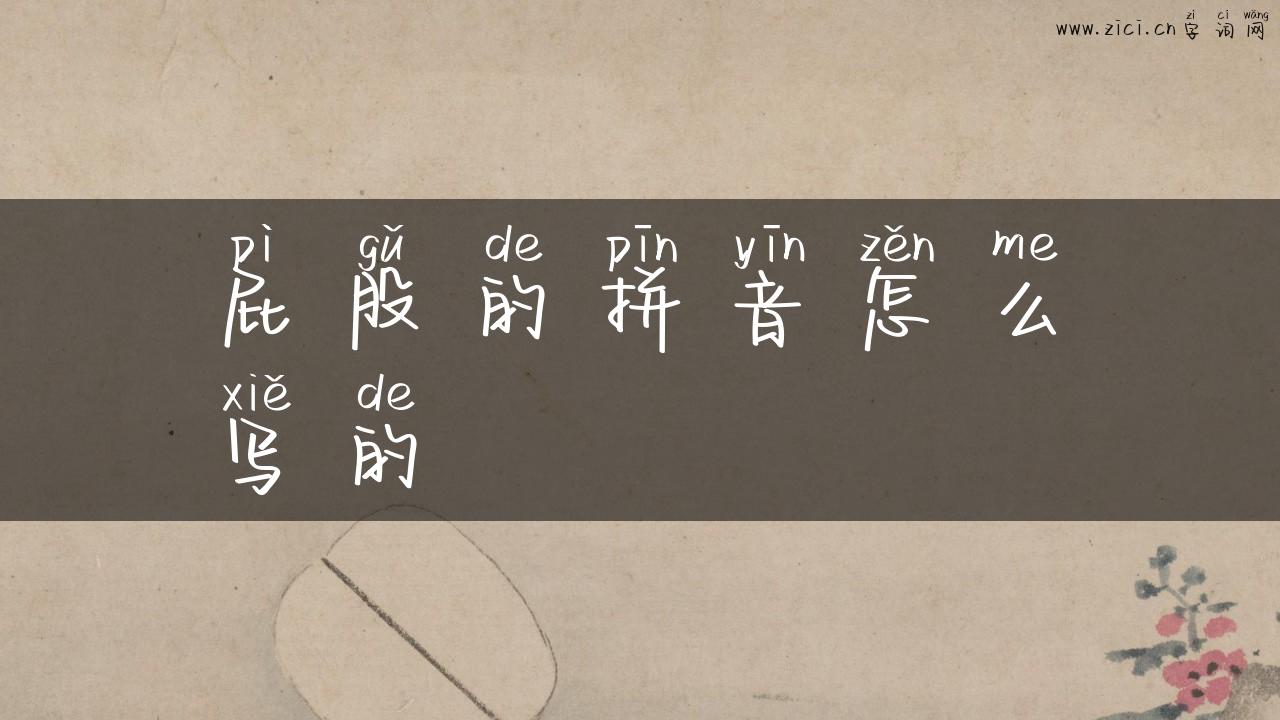 zì cí wǎng
www.zici.cn 字 词 网
pì gǔ de pīn yīn zěn me
屁 股 的 拼 音 怎 么
xiě de
写 的